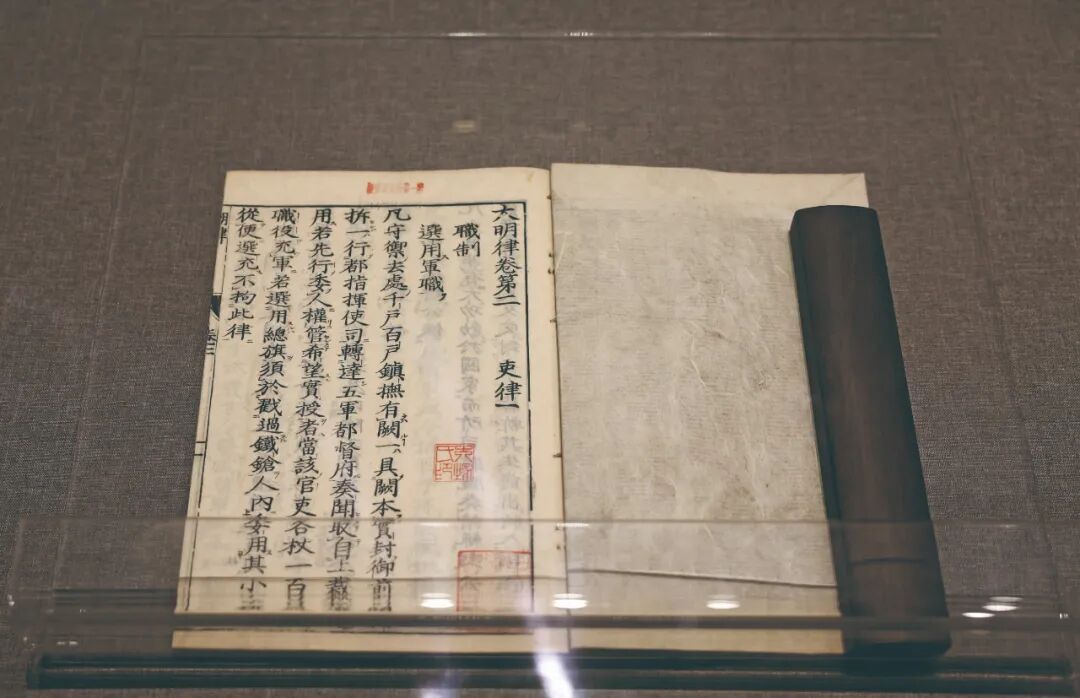 大明律卷第二 吏律一
職制
選用軍職
凡守禦去處千戸百戸鎮撫有闕一具闕本實封御前
拆一行都指揮使司轉達五軍都督府奏聞取自上裁
用若先行委人權管希望實授者當該官吏各杖一百
職役充軍若選用總旗須於戳過鐵鎗人內委用其小
從便選充不拘此律